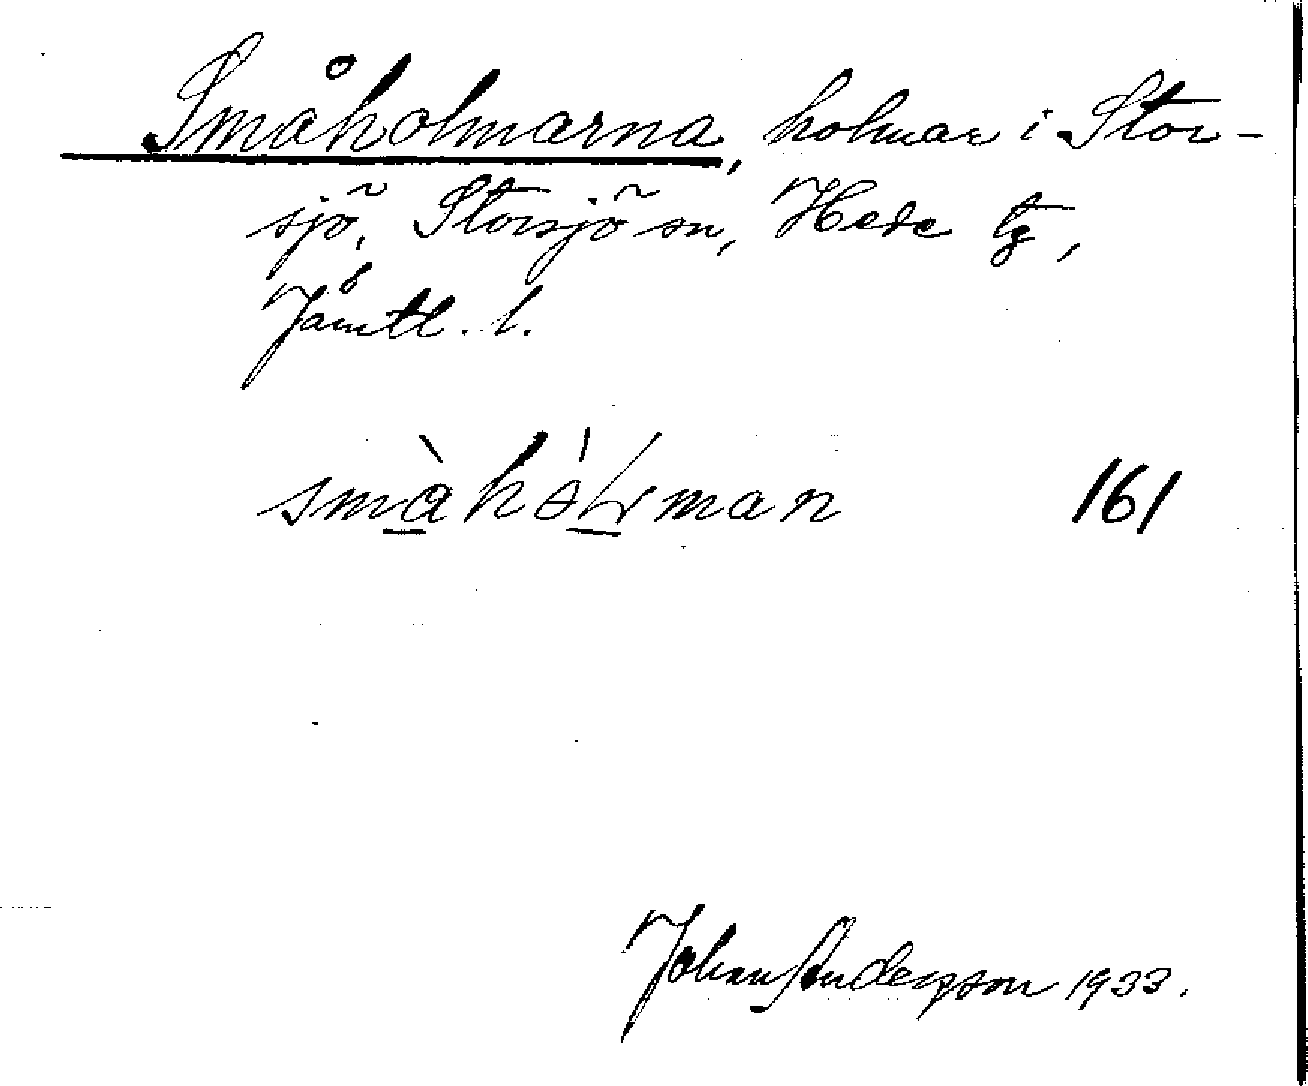 Småholmarna, holmar i Stor-
sjö, Storsjö sn, Hede tg,
Jämtl. l.
161
Johan Anderson 1933.